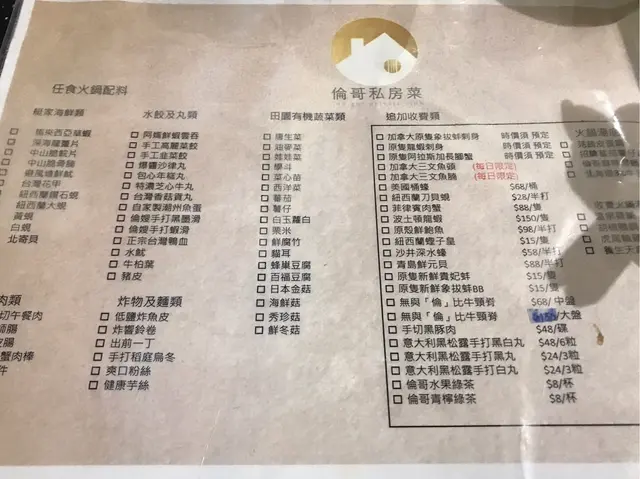 倫哥私房菜
任食火鍋配料
馬來西亞草蝦
深海龍躉片
中山脆鯇片
避風塘鮮魷
台灣花甲
紐西蘭鑽石蜆
紐西蘭大蜆
黃蜆
白蜆
北寄貝
水餃及丸類
阿嫲鮮蝦雲吞
手工高麗菜餃
手工韭菜餃
爆醬沙律丸
包心年糕丸
特濃芝心牛丸
台灣香菇貢丸
自家製潮州魚蛋
倫嫂手打黑墨滑
倫嫂手打蝦滑
正宗台灣鴨血
水魷
牛柏葉
豬皮
田園有機蔬菜類
唐生菜
油麥菜
娃娃菜
學斗
菜心苗
西洋菜
蕃茄
薯仔
白玉蘿白
粟米
鮮腐竹
雲耳
蜂巢豆腐
百福豆腐
日本金菇
海鮮菇
秀珍菇
鮮冬菇
追加收費類
加拿大原隻象拔蚌刺身 時價須 預定
原隻龍蝦刺身 時價須 預定
原隻阿拉斯加長腳蟹 時價須 預定
加拿大三文魚頭 (每日限定)
加拿大三文魚腩 (每日限定)
美國桶蠔 $68/桶
紐西蘭刀貝蜆 $28/半打
菲律賓肉蟹 $88/隻
波士頓龍蝦 $150/隻
原殼鮮鮑魚 $98/半打
紐西蘭蟶子皇 $15/隻
沙井深水蠔 $58/半打
青島鮮元貝 $88/半打
原隻新鮮貴妃蚌 $15/隻
原隻新鮮象拔蚌BB $15/隻
無與「倫」比牛頸脊 $68/中盤
無與「倫」比牛頸脊 /大盤
手切黑豚肉 $48/碟
意大利黑松露手打黑白丸 $48/6粒
意大利黑松露手打黑丸 $24/3粒
意大利黑松露手打白丸 $24/3粒
倫哥水果綠茶 $8/杯
倫哥青檸綠茶 $8/杯
肉類
切午餐肉
蟹肉棒
炸物及麵類
低鹽炸魚皮
炸響鈴卷
出前一丁
手打稻庭烏冬
爽口粉絲
健康芋絲
火鍋